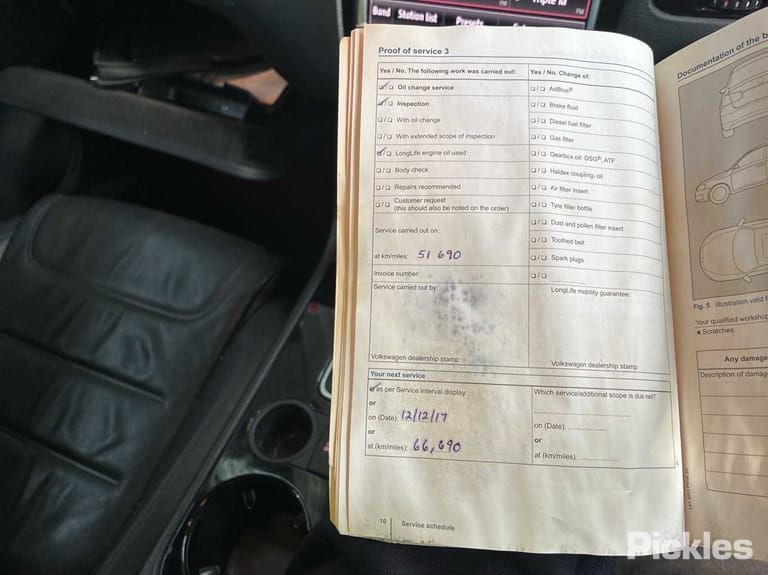 Triple M
FM
FM
Band Station list Presets
Proof of service 3
Yes / No. The following work was carried out:
☑/☐ Oil change service
☑/☐ Inspection
☐/☐ With oil change
☐/☐ With extended scope of inspection
☑/☐ LongLife engine oil used
☐/☐ Body check
☐/☐ Repairs recommended
☐/☐ Customer request
(this should also be noted on the order)
Service carried out on:
at km/miles: 51 690
Invoice number:
Service carried out by:
Volkswagen dealership stamp
Yes / No. Change of:
☐/☐ AdBlue®
☐/☐ Brake fluid
☐/☐ Diesel fuel filter
☐/☐ Gas filter
☐/☐ Gearbox oil: DSG®, ATF
☐/☐ Haldex coupling: oil
☐/☐ Air filter insert
☐/☐ Tyre filler bottle
☐/☐ Dust and pollen filter insert
☐/☐ Toothed belt
☐/☐ Spark plugs
☐/☐
LongLife mobility guarantee:
Volkswagen dealership stamp
Your next service
☑ as per Service interval display
or
on (Date): 12/12/17
or
at (km/miles): 66,690
Which service/additional scope is due not?
on (Date):
or
at (km/miles):
10 | Service schedule
Documentation of the b
Fig. 5 Illustration valid f
Your qualified workshop
x Scratches
Any damage
Description of damag
Pickles